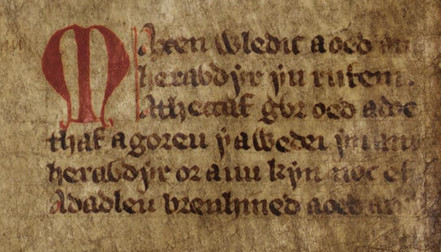 Maxen wledic aoed am
herawdyr yn rufein.
Atheccaf gvr oed adoe
thaf agoreu yawedei ynam
herawdyr or auu kyn noc ef
Adadleu brenhined aoed